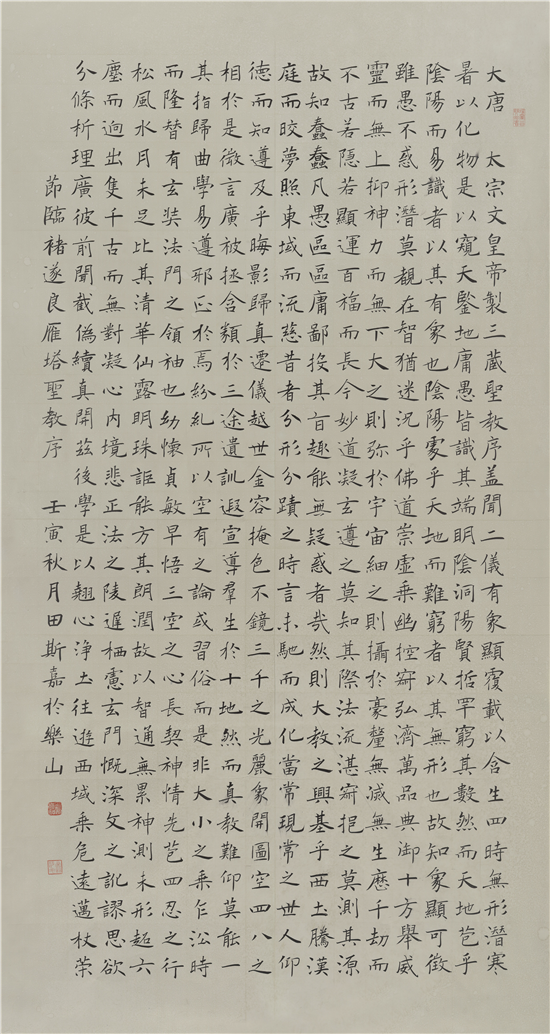 大唐　太宗文皇帝製三藏聖教序盖聞二儀有象顯覆載以含生四時無形潛寒
暑以化物是以窺天鑒地庸愚皆識其端明陰洞陽賢哲罕窮其數然而天地苞乎
陰陽而易識者以其有象也陰陽處乎天地而難窮者以其無形也故知象顯可徵
雖愚不惑形潛莫覩在智猶迷況乎佛道崇虛乘幽控寂弘濟萬品典御十方舉威
靈而無上抑神力而無下大之則弥於宇宙細之則攝於豪釐無滅無生歷千劫而
不古若隱若顯運百福而長今妙道凝玄遵之莫知其際法流湛寂挹之莫測其源
故知蠢蠢凡愚區區庸鄙投其旨趣能無疑惑者哉然則大教之興基乎西土騰漢
庭而皎夢照東域而流慈昔者分形分蹟之時言未馳而成化當常現常之世人仰
德而知遵及乎晦影歸真遷儀越世金容掩色不鏡三千之光麗象開圖空四八之
相於是微言廣被拯含類於三途遺訓遐宣導羣生於十地然而真教難仰莫能一
其指歸曲學易遵邪正於焉紛糺所以空有之論或習俗而是非大小之乘乍沿時
而隆替有玄奘法門之領袖也幼懷貞敏早悟三空之心長契神情先苞四忍之行
松風水月未足比其清華仙露明珠詎能方其朗潤故以智通無累神測未形超六
塵而迥出隻千古而無對凝心內境悲正法之陵遲栖慮玄門慨深文之訛謬思欲
分條析理廣彼前聞截偽續真開茲後學是以翹心淨土往遊西域乘危遠邁杖榮
節臨褚遂良雁塔聖教序　壬寅秋月田斯嘉於樂山